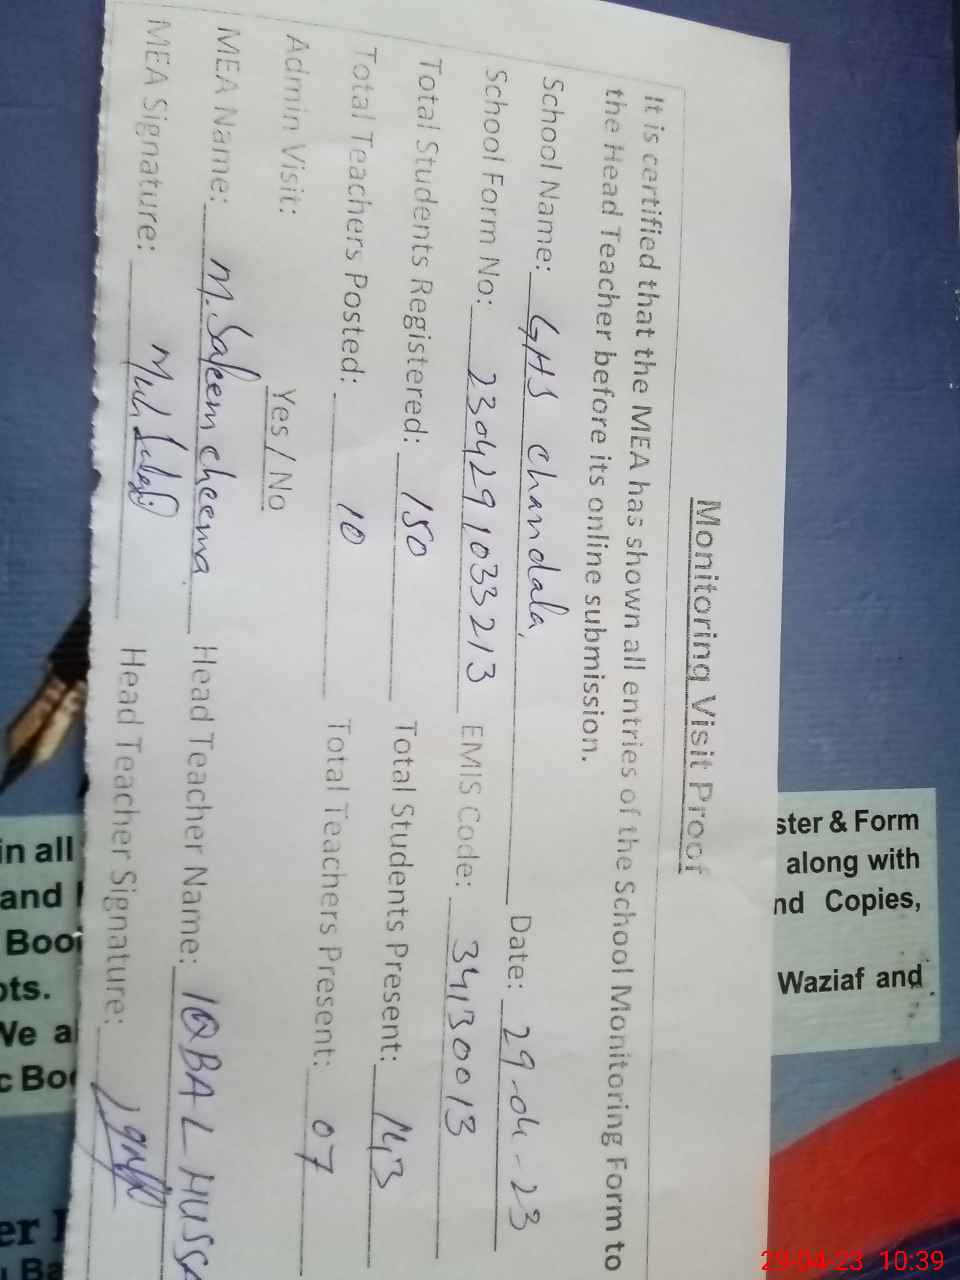 Monitoring Visit Proof
It is certified that the MEA has shown all entries of the School Monitoring Form to
the Head Teacher before its online submission.
School Name: GHS chandala, Date: 29-04-23
School Form No: 230429 1033213 EMIS Code: 34130013
Total Students Registered: 150 Total Students Present: 143
Total Teachers Posted: 10 Total Teachers Present: 07
Admin Visit: Yes / No
MEA Name: M. Saleem cheema. Head Teacher Name: IQBAL HUSSA
MEA Signature: Muh Head Teacher Signature:
ster & Form
along with
nd Copies,
Waziaf and
in all
and
Boo
ots.
We a
c Boo
er
Ba
29-04-23 10:39